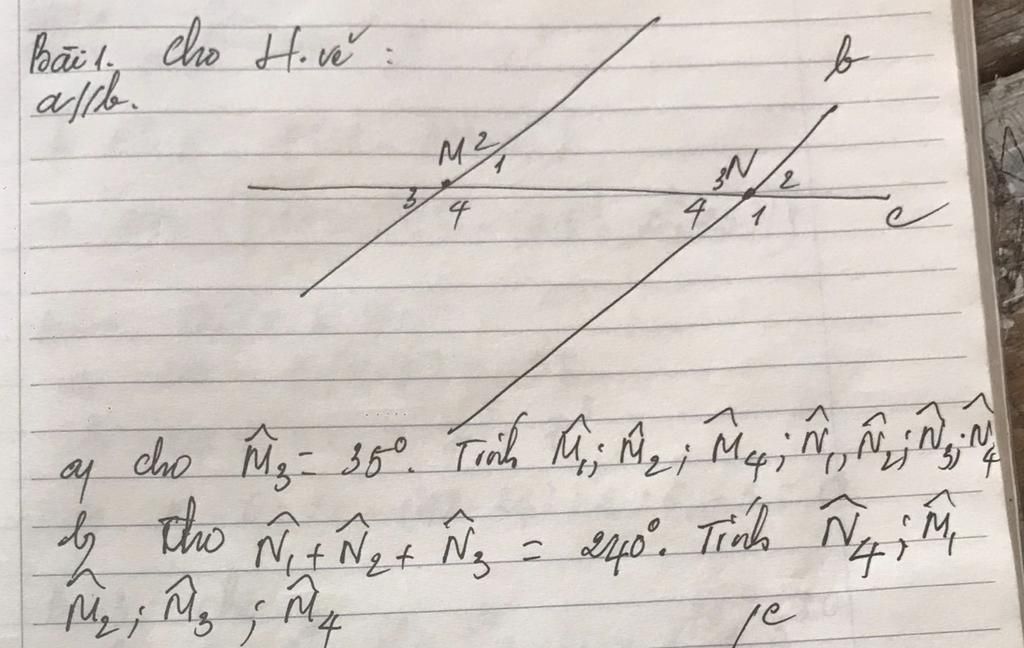 Bài 1. Cho H.vẽ :
a//b.
b
M 2
1
3 4
3 N 2
4 1
c
a, cho M̂₃ = 35°. Tính M̂₁; M̂₂; M̂₄; N̂₁, N̂₂; N̂₃; N̂₄
b, Cho N̂₁ + N̂₂ + N̂₃ = 240°. Tính N̂₄; M̂₁
M̂₂; M̂₃; M̂₄
c